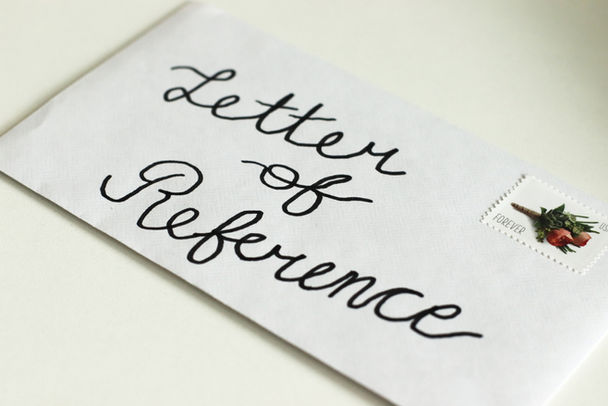 Letter
of
Reference
FOREVER
US